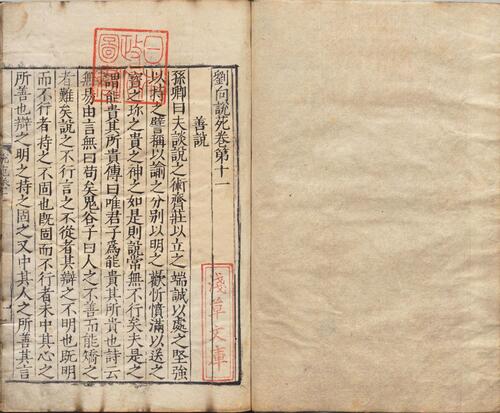 劉向說苑卷第十一
善說
孫卿曰夫談說之術齊莊以立之端誠以處之堅強
以持之譬稱以諭之分別以明之歡忻憤滿以送之
寶之珍之貴之神之如是則說常無不行矣夫是之
謂能貴其所貴傳曰唯君子為能貴其所貴也詩云
無易由言無曰苟矣鬼谷子曰人之不善而能矯之
者難矣說之不行言之不從者其辯之不明也既明
而不行者持之不固也既固而不行者未中其心之
所善也辯之明之持之固之又中其人之所善其言
淺草文庫